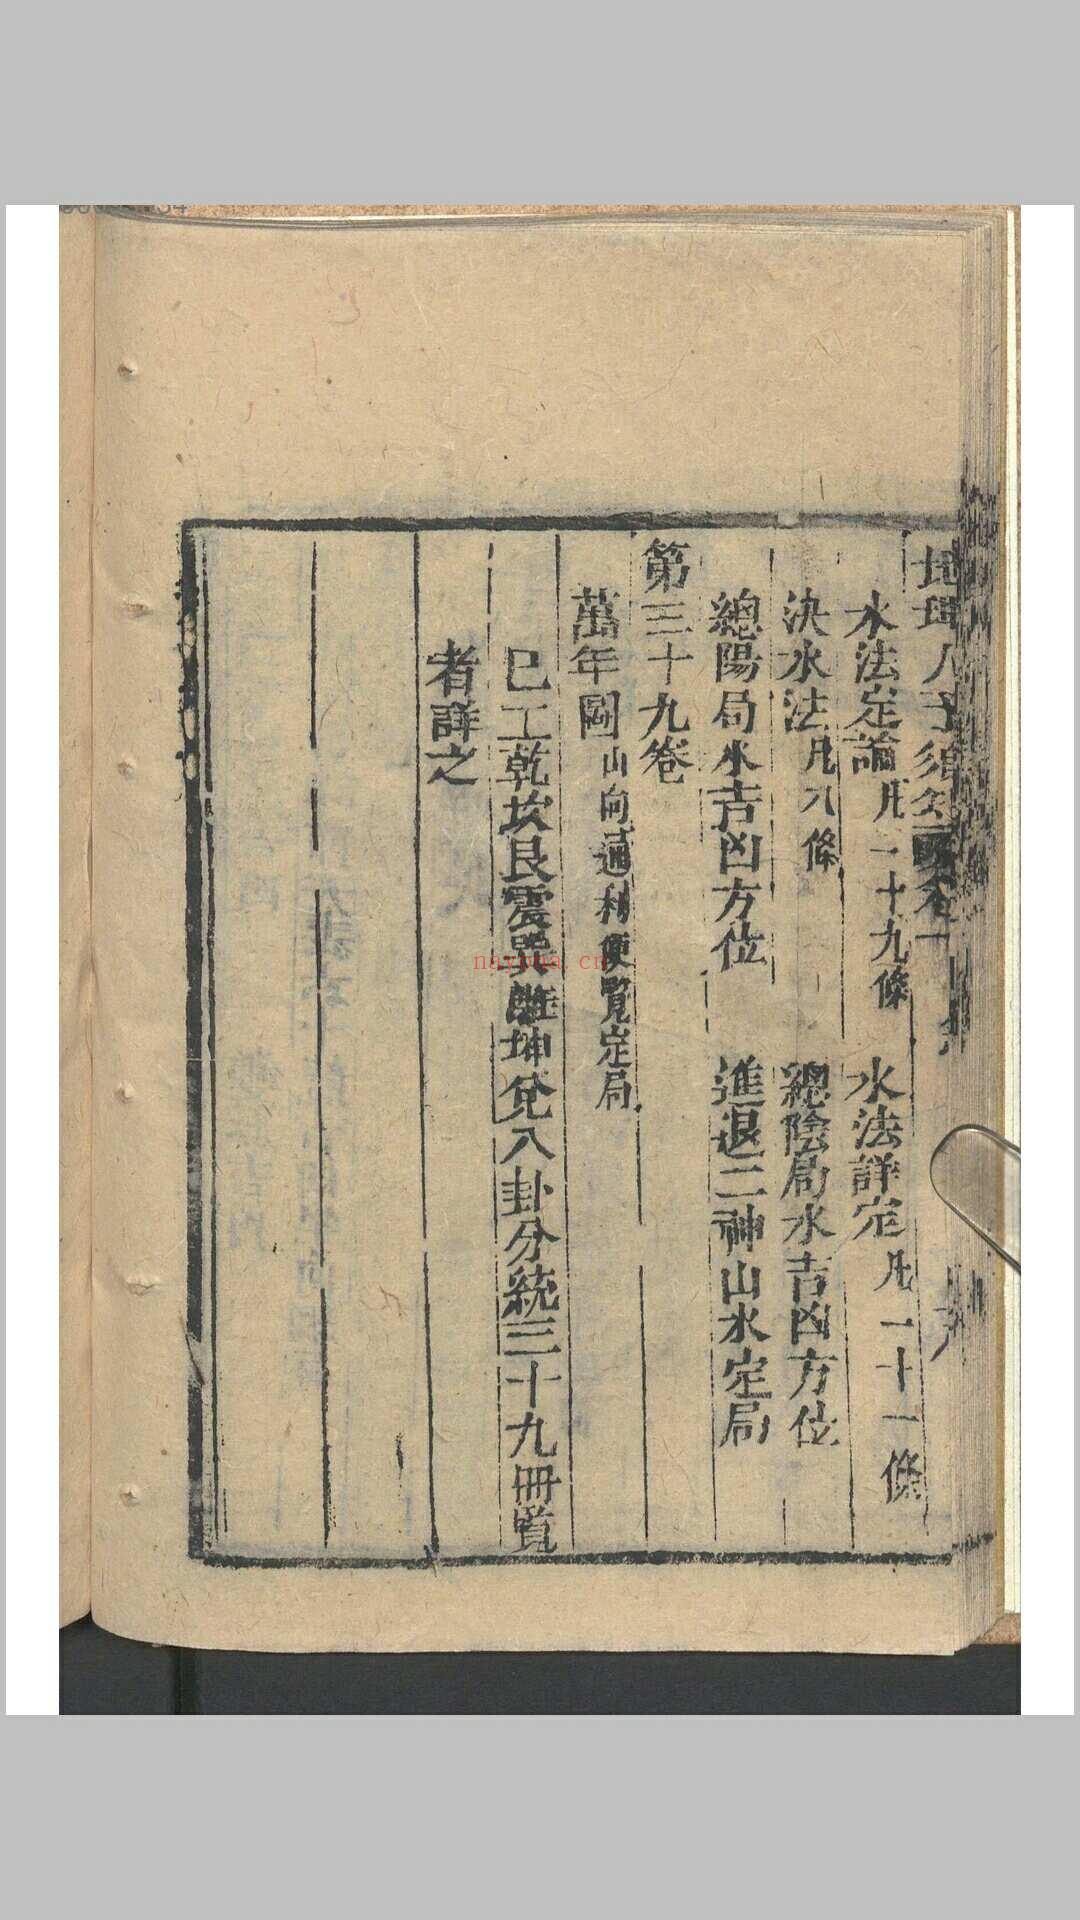 地理人子須知
水法定論凡二十九條 水法詳定凡一十一條
決水法凡八條 總陰局水吉凶方位
總陽局水吉凶方位 進退二神山水定局
第三十九卷
萬年圖山向通利便覽定局
已上乾坎艮震巽離坤兌八卦分統三十九冊覽
者詳之